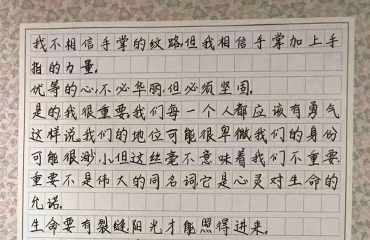 我不相信手掌的纹路但我相信手掌加上手
指的力量.
优等的心,不必华丽.但必须坚固.
是的我很重要.我们每一个人都应该有勇气
这样说.我们的地位可能很卑微.我们的身份
可能很渺小.但这丝毫不意味着我们不重要.
重要不是伟大的同名词它是心灵对生命的
允诺.
生命要有裂缝阳光才能照得进来.